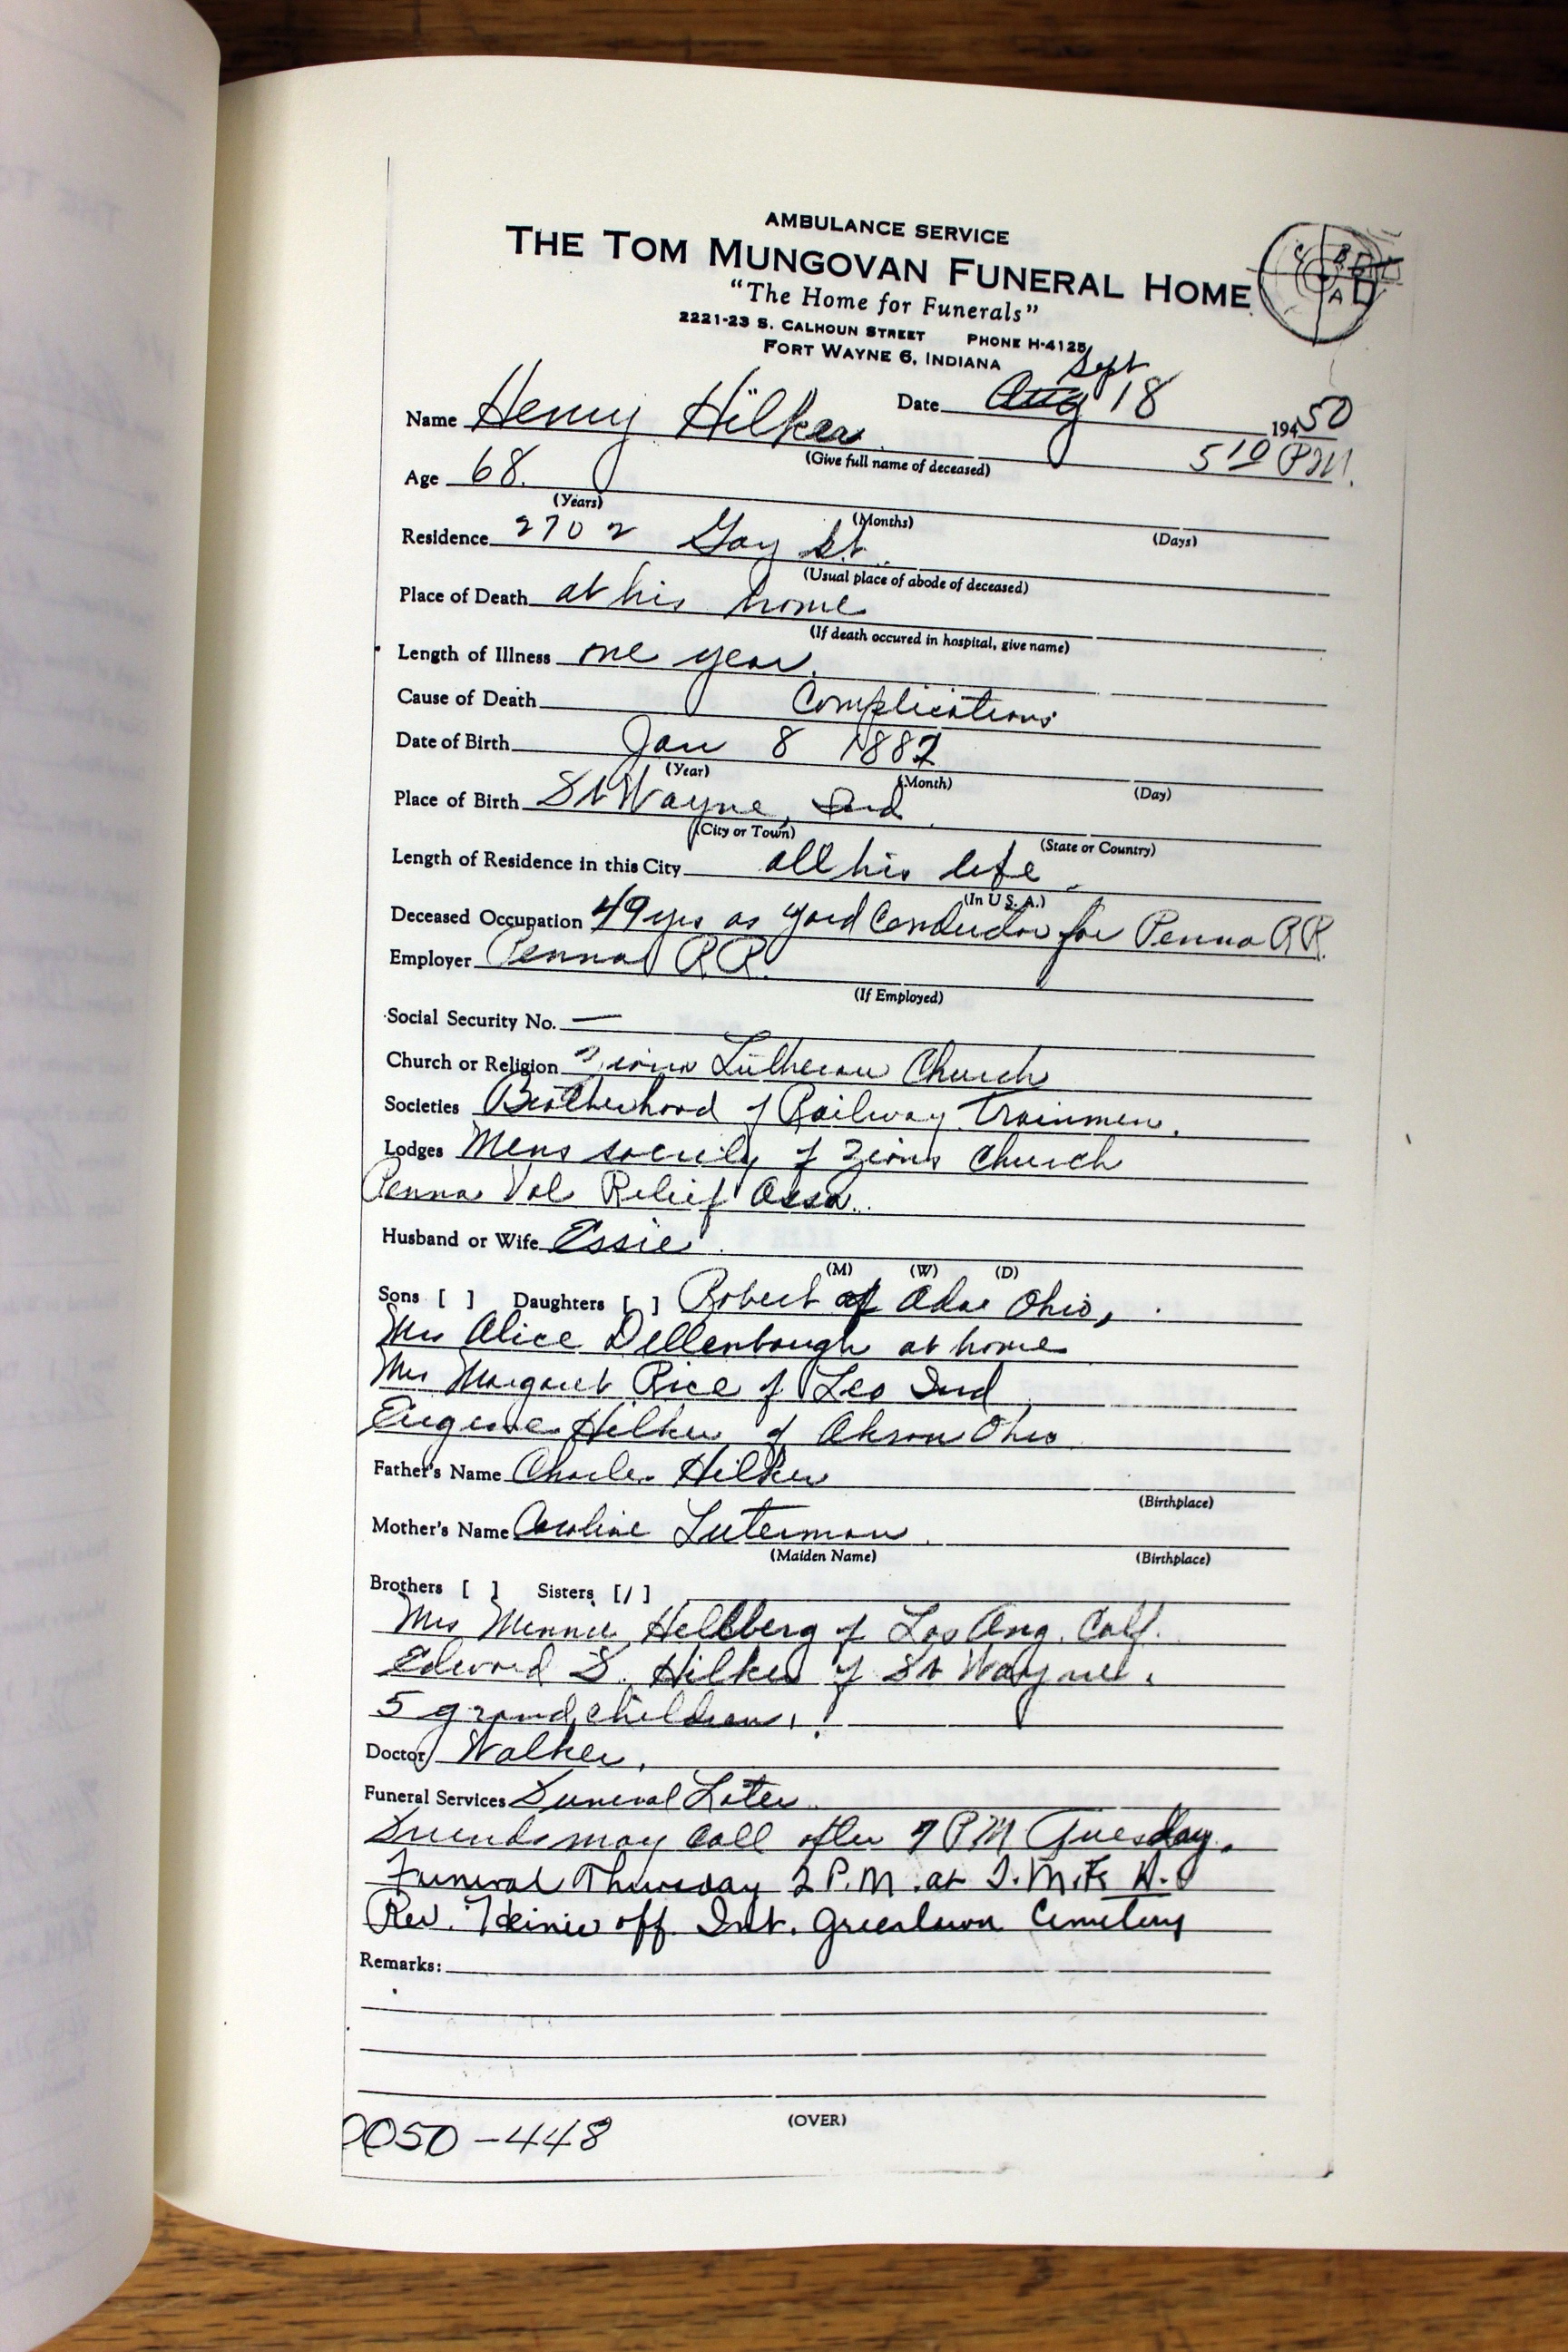 AMBULANCE SERVICE
THE TOM MUNGOVAN FUNERAL HOME
"The Home for Funerals"
2221-23 S. CALHOUN STREET PHONE H-4125
FORT WAYNE 6, INDIANA
Sept
Date Aug 18 194 50
Name Henry Hilker 5 10 P.M.
(Give full name of deceased)
Age 68.
(Years) (Months) (Days)
Residence 2702 Gay St.
(Usual place of abode of deceased)
Place of Death at his home
(If death occured in hospital, give name)
Length of Illness one year.
Cause of Death Complications
Date of Birth Jan 8 1882
(Year) (Month) (Day)
Place of Birth Ft Wayne, Ind
(City or Town) (State or Country)
Length of Residence in this City all his life
(In U.S.A.)
Deceased Occupation 49 yrs as yard Conductor for Penna RR.
Employer Penna RR.
(If Employed)
Social Security No. —
Church or Religion Zions Lutheran Church
Societies Brotherhood of Railway Trainmen.
Lodges Mens society of Zions Church
Penna Vol Relief Assn.
Husband or Wife Essie
(M) (W) (D)
Sons [ ] Daughters [ ] Robert of Ada Ohio,
Mrs Alice Dellenbaugh at home
Mrs Margaret Rice of Leo Ind
Eugene Hilker of Akron Ohio
Father's Name Charles Hilker
(Birthplace)
Mother's Name Caroline Luterman
(Maiden Name) (Birthplace)
Brothers [ ] Sisters [/]
Mrs Minnie Hellberg of Los Ang. Calf.
Edward F. Hilker of Ft Wayne.
5 grand children.
Doctor Walker.
Funeral Services Funeral Later
Friends may call after 7 PM Tuesday.
Funeral Thursday 2 P.M. at T.M.F. H.
Rev. off. Int. Greenlawn Cemetery
Remarks:
(OVER)
0050-448